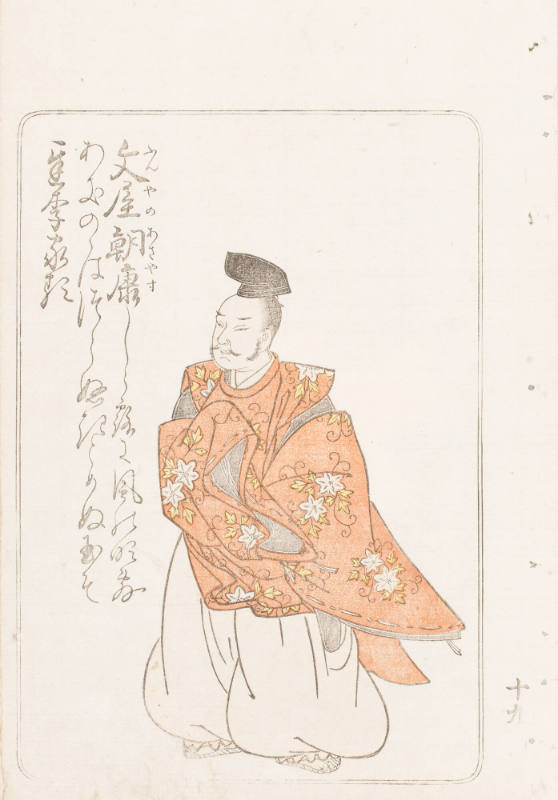 ふんやのあさやす
文屋朝康 しら露に風の吹しく
あきのゝはつらぬきとめぬ玉そ
ちりける
十九